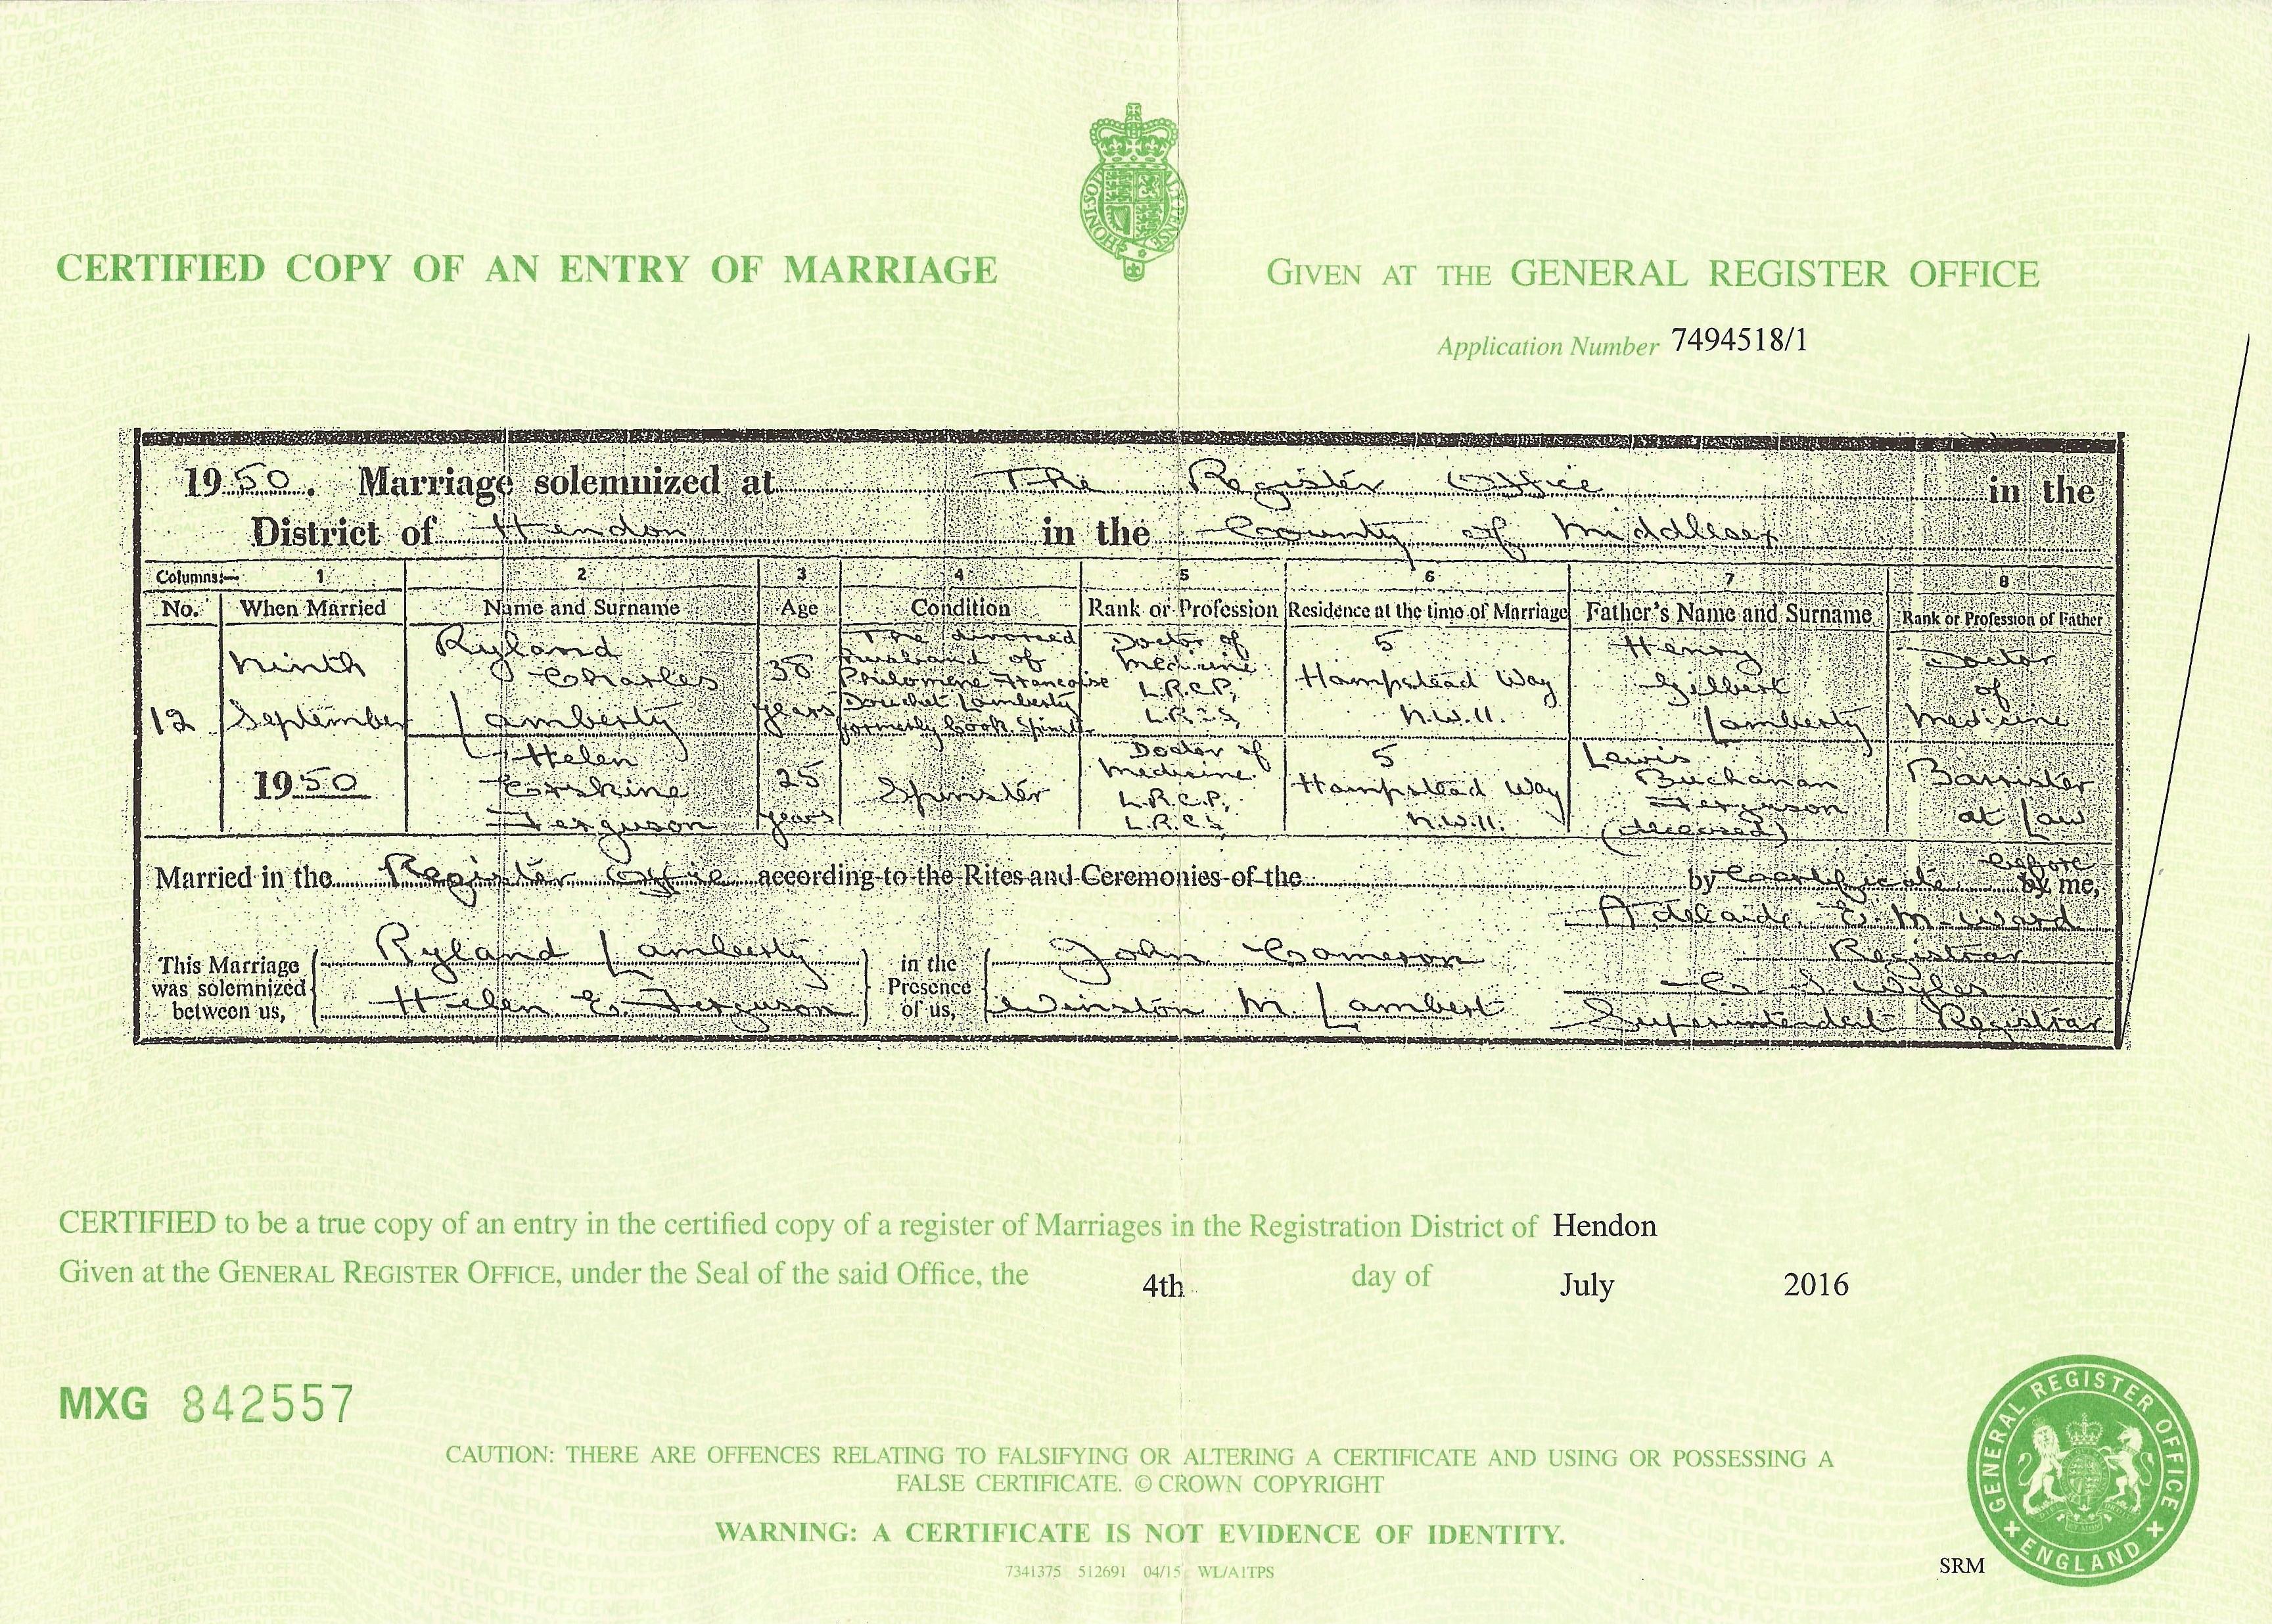 CERTIFIED COPY OF AN ENTRY OF MARRIAGE
GIVEN AT THE GENERAL REGISTER OFFICE
Application Number 7494518/1
1950. Marriage solemnized at The Register Office in the
District of Hendon in the County of Middlesex
Columns:— 1 2 3 4 5 6 7 8
No. When Married Name and Surname Age Condition Rank or Profession Residence at the time of Marriage Father's Name and Surname Rank or Profession of Father
12
Ninth
September
1950
Ryland
Charles
Lamberty
38
years
The divorced
husband of
Philomene Francoise
Lamberty
formerly Cook Spinster
Doctor of
Medicine
L.R.C.P.,
5
Hampstead Way
N.W.11.
Henry
Gilbert
Lamberty
Doctor
of
Medicine
Helen
Erskine
Ferguson
25
years
Spinster
Doctor of
Medicine
L.R.C.P.,
L.R.C.S.
5
Hampstead Way
N.W.11.
Lewis
Buchanan
Ferguson
(deceased)
Barrister
at Law
Married in the Register Office according to the Rites and Ceremonies of the by Certificate before by me,
Adelaide E. M. Ward
Registrar
This Marriage was solemnized between us,
Ryland Lamberty
Helen E. Ferguson
in the Presence of us,
John Cameron
Winston M. Lambert
C S Wyles
Superintendent Registrar
CERTIFIED to be a true copy of an entry in the certified copy of a register of Marriages in the Registration District of Hendon
Given at the GENERAL REGISTER OFFICE, under the Seal of the said Office, the 4th day of July 2016
MXG 842557
CAUTION: THERE ARE OFFENCES RELATING TO FALSIFYING OR ALTERING A CERTIFICATE AND USING OR POSSESSING A
FALSE CERTIFICATE. © CROWN COPYRIGHT
WARNING: A CERTIFICATE IS NOT EVIDENCE OF IDENTITY.
7341375 512691 04/15 WL/A1TPS
SRM
GENERAL REGISTER OFFICE
ENGLAND